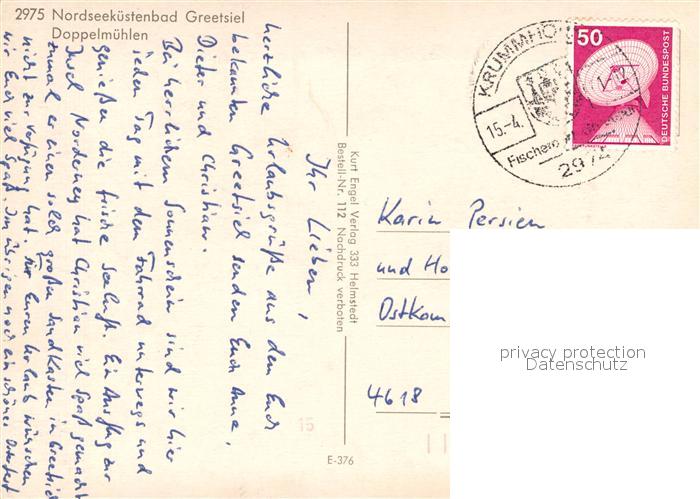 2975 Nordseeküstenbad Greetsiel
Doppelmühlen
Ihr Lieben,
herzliche Urlaubsgrüße aus dem Euch
bekannten Greetsiel senden Euch Anne,
Dieter und Christian.
Bei herrlichem Sonnenschein sind wir hier
jeden Tag mit dem Fahrrad unterwegs und
genießen die frische Seeluft. Ein Ausflug zur
Insel Norderney hat Christian viel Spaß gemacht
zumal er einen solch großen Sandkasten in Greetsiel
nicht zu Verfügung hat. Für Euren Urlaub wünschen
wir Euch viel Spaß. Im übrigen noch ein schönes Osterfest
Kurt Engel Verlag 333 Helmstedt
Bestell-Nr. 112 Nachdruck verboten
E-376
15
50
DEUTSCHE BUNDESPOST
KRUMMHÖ
15.-4.
Fischerd
2974
Karin Persien
und Ho
Ostkam
4618
privacy protection
Datenschutz